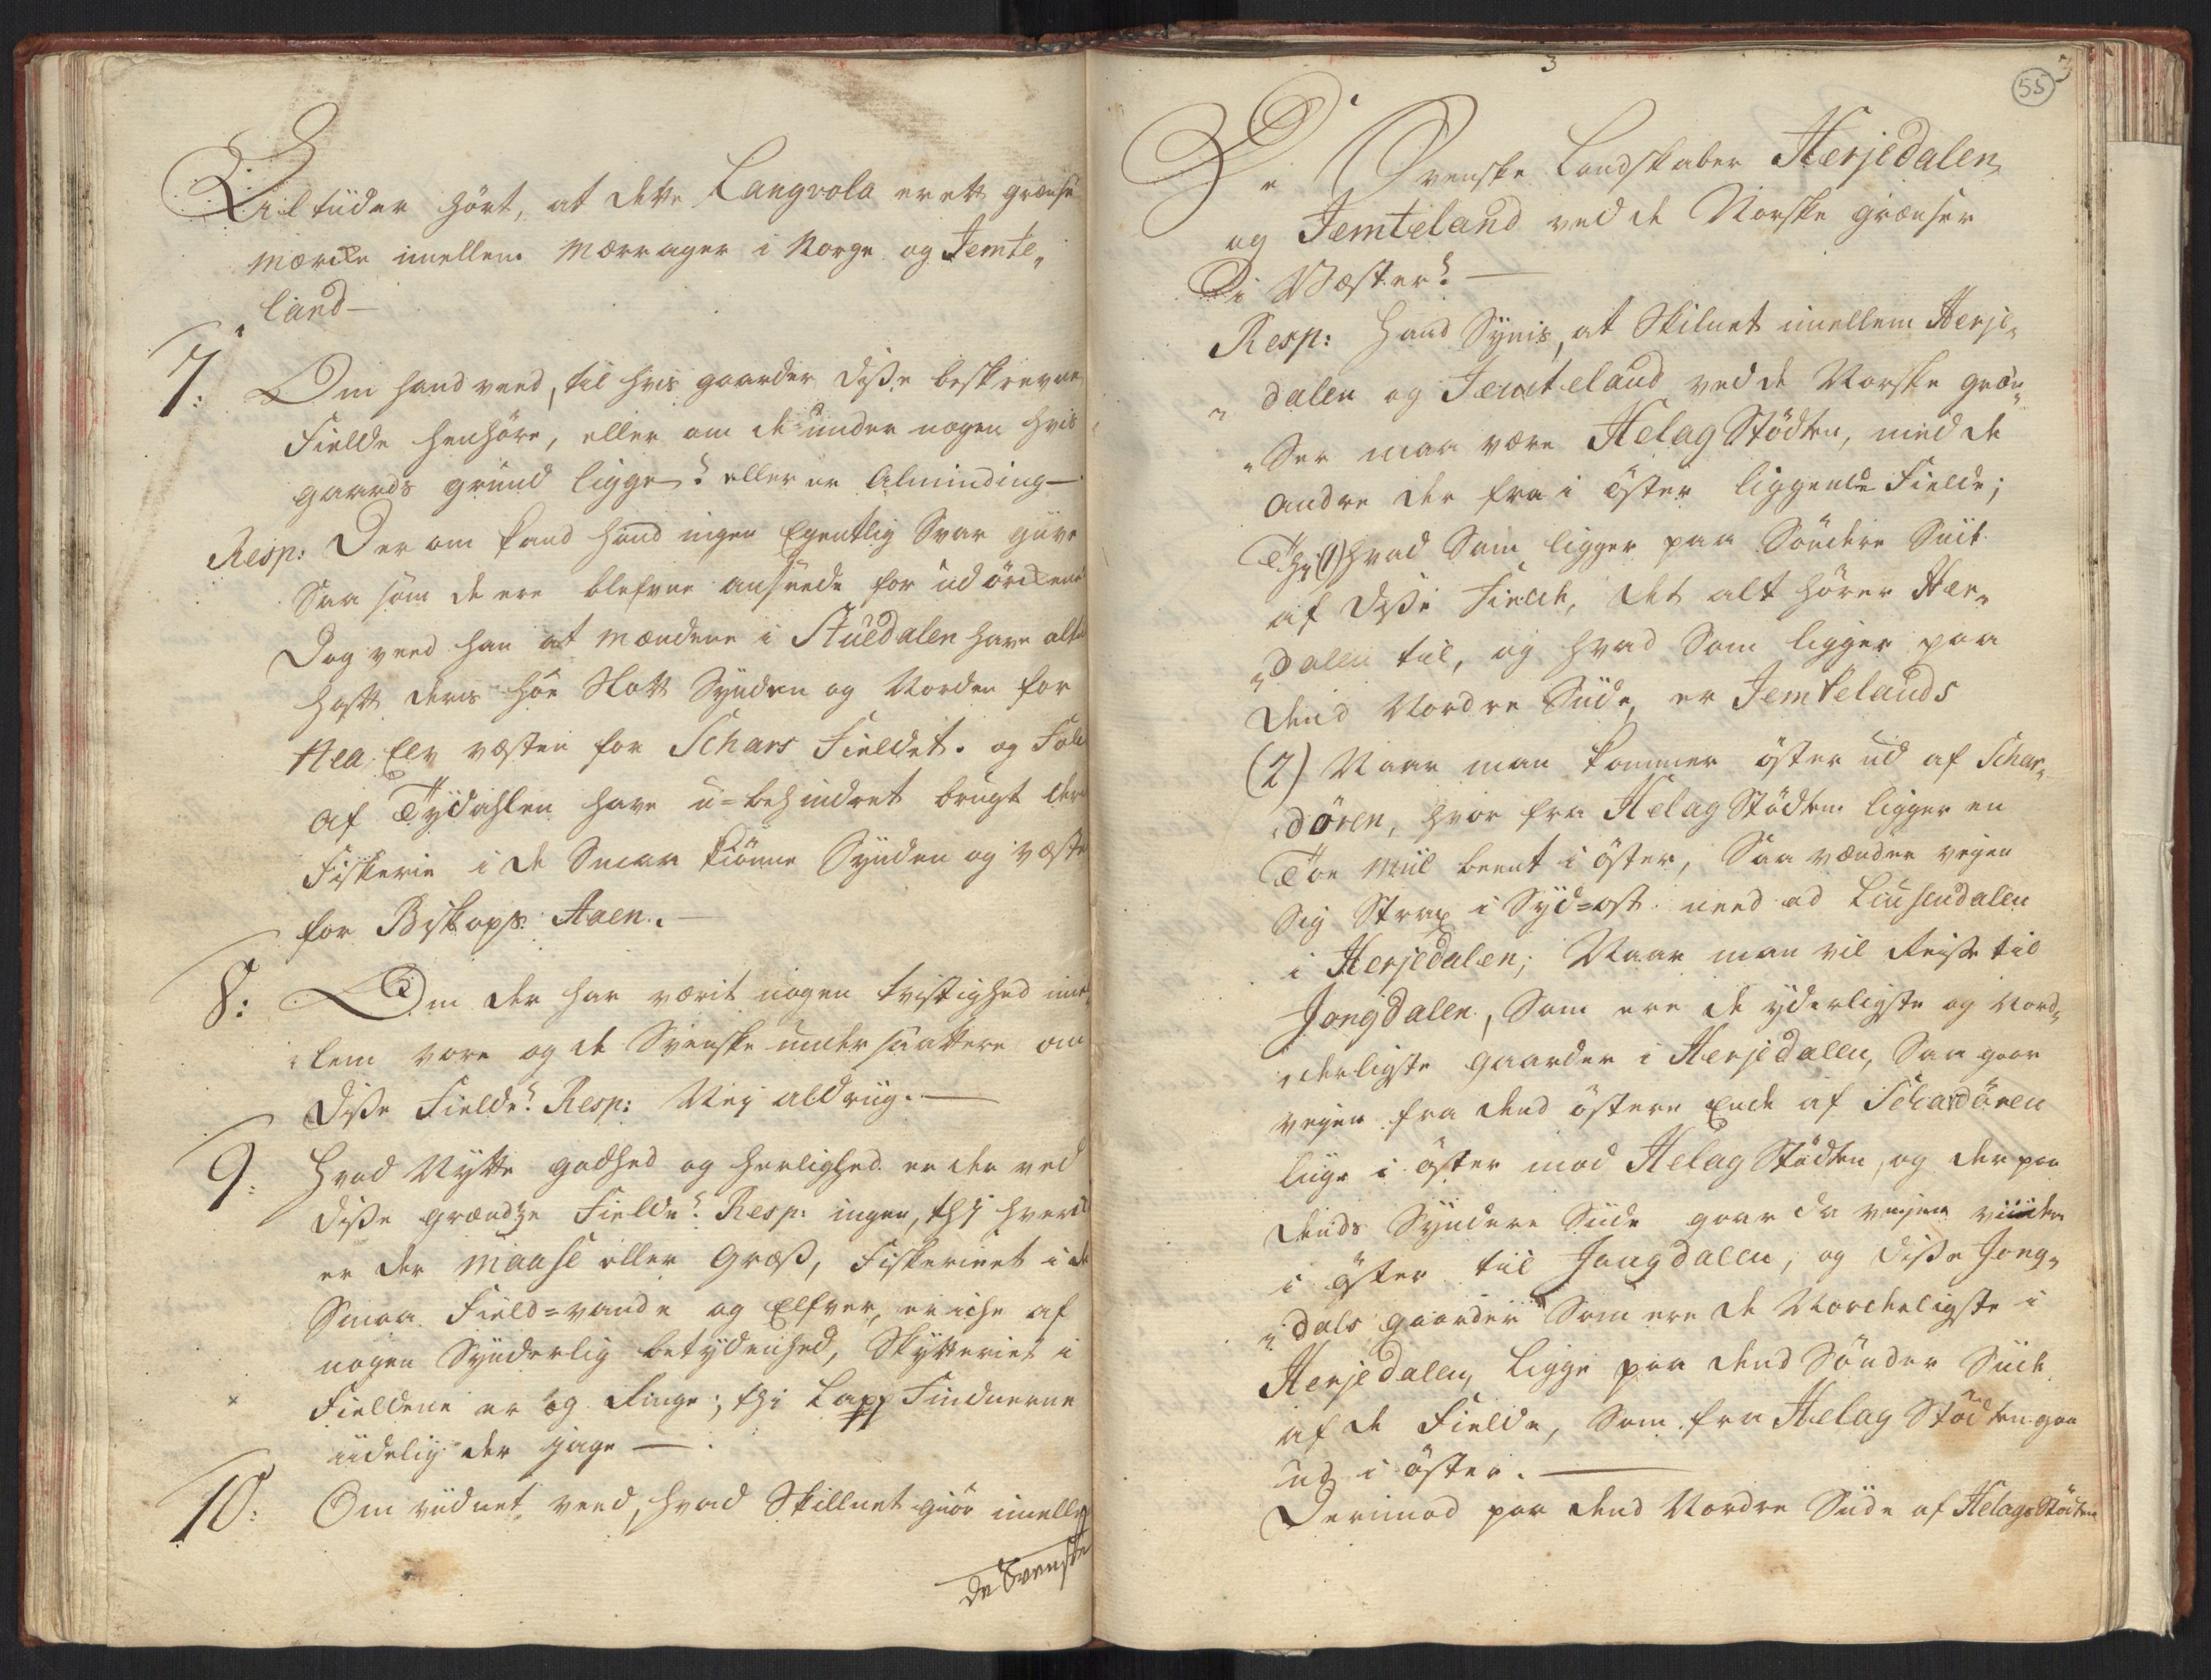 Altiider hört, at dette Langvola er ett grænse
mærcke imellem Mærrager i Norge og Jemte„
land—
7: Om hand veed, til hvis gaarder disse beskrevne
Fielde henhöre, eller om de under nogen hvis
gaards grund ligge? eller er Alminding—
Resp: Der om kand hand ingen Egentlig Svar give
Saa som de ere blefvne ansеede for udörckener
Dog veed han at Mændene i Stuedalen have altid
haft deris höe Slott Synden og Norden for
Nea Elv væsten for Schars Fieldet. og Folk
af Tydahlen have u=behindret brugt deris
Fiskerie i de Smaa Kiönne Synden og væsten
for Biskops Aaen.—
8: Om der har værit nogen tvistighed imel„
„lem vore og de Svenske undersaattere om
disse Fielde? Resp: Nej aldriig.—
9: Hvad Nytte godhed og herlighed er der ved
disse grændtze Fielde? Resp: ingen, thi hverck
er der Maase eller Græss, Fiskeriet i de
Smaa Field=vande og Elfver, er iche af
nogen Synderlig betydenhed, Skytteriet i
Fieldene er og Ringe; thi Lapp Finderne
iidelig der jage—.
10: Om viidnet veed, hvad Skillnet giör imellem
de Svenske
3
55
De Svenske Landskaber Herjedalen
og Jemteland ved de Norske grænser
i Væster?—
Resp: Hand Synis, at Skilnet imellem Herje„
„dalen og Jemteland ved de Norske græn„
„ser maa være Helag Stödten, med de
andre der fra i öster liggende Fielde;
Thi (1) hvad Som ligger paa Söndere Siide
af disse Fielde, det alt hörer Her„
„dalen til, og hvad Som ligger paa
dend Nordre Siide, er Jemtelands
(2) Naar man kommer öster ud af Schar„
„dören, hvor fra Helag Stödten ligger en
Toe Miil beent i öster, Saa vender vejen
Sig Strax i Syd=ost need ad Liusendalen
i Herjedalen; Naar man vil Reise til
Jongdalen, Som ere de yderligste og Nord„
„derligste gaarder i Herjedalen, Saa gaar
vejen fra dend östere Ende af Schardören
liige i öster mod Helag Stödten, og der paa
dends Syndere Siide gaar da vejen viidere
i öster til Jongdalen, og disse Jong„
„dals gaarder Som ere de Norderligste i
Herjedalen, ligge paa dend Sönder Siide
af de Fielde, Som fra Helag Stödten gaa
ud i öster.—
Derimod paa dend Nordre Siide af Helags Stödten